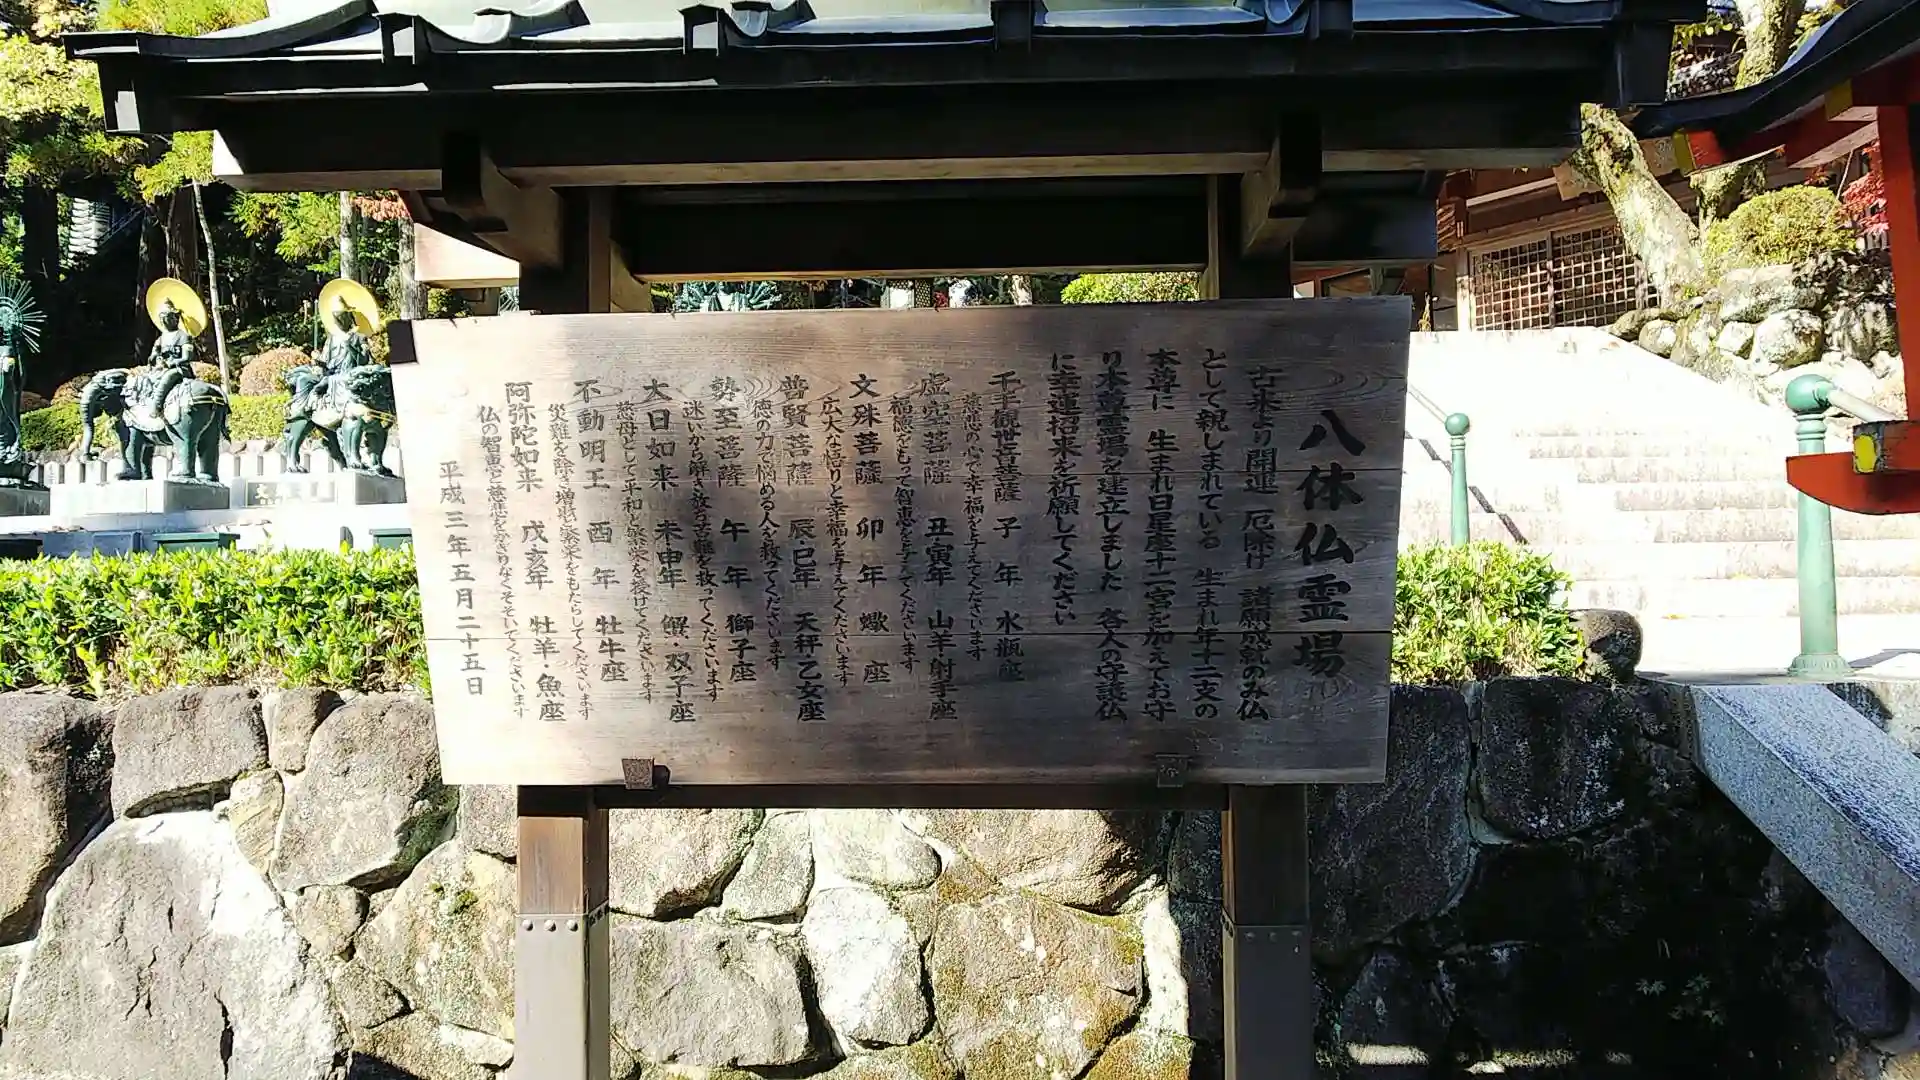 八体仏霊場
古来より開運 厄除け 諸願成就のみ仏
として親しまれている 生まれ年十二支の
本尊に 生まれ日星座十二宮を加えてお守
り本尊霊場を建立しました 各人の守護仏
に幸運招来を祈願してください
千手観世音菩薩 子年 水瓶座
慈悲の心で幸福を与えてくださいます
虚空菩薩 丑寅年 山羊射手座
福徳をもって智恵を与えてくださいます
文殊菩薩 卯年 蠍座
広大な悟りと幸福を与えてくださいます
普賢菩薩 辰巳年 天秤乙女座
徳の力で悩める人を救ってくださいます
勢至菩薩 午年 獅子座
迷いから解き放ち苦難を救ってくださいます
大日如来 未申年 蟹・双子座
慈母として平和と繁栄を授けてくださいます
不動明王 酉年 牡牛座
災難を除き増財と繁栄をもたらしてくださいます
阿弥陀如来 戌亥年 牡羊・魚座
仏の智恵と慈悲をかぎりなくそそいでくださいます
平成三年五月二十五日